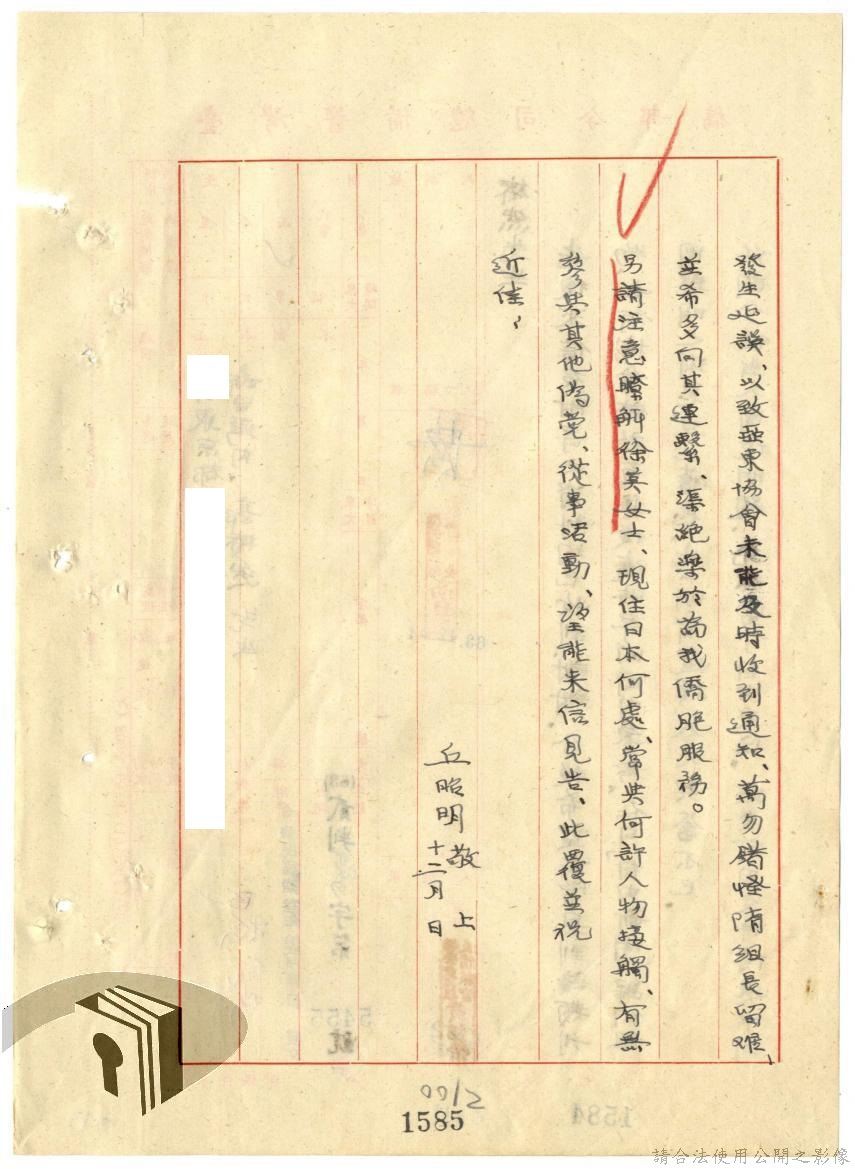 發生延誤、以致亞東協會未能及時收到通知、萬勿錯怪隋組長留难、
並希多向其連繫、渠絕樂於為我僑胞服務。
另請注意瞭解徐英女士、現住日本何處、常共何許人物接觸、有無
參共其他偽党、從事活動、望能来信見告、此覆並祝
近佳、
丘昭明敬上
十二月 日
2100
1585
請合法使用公開之影像